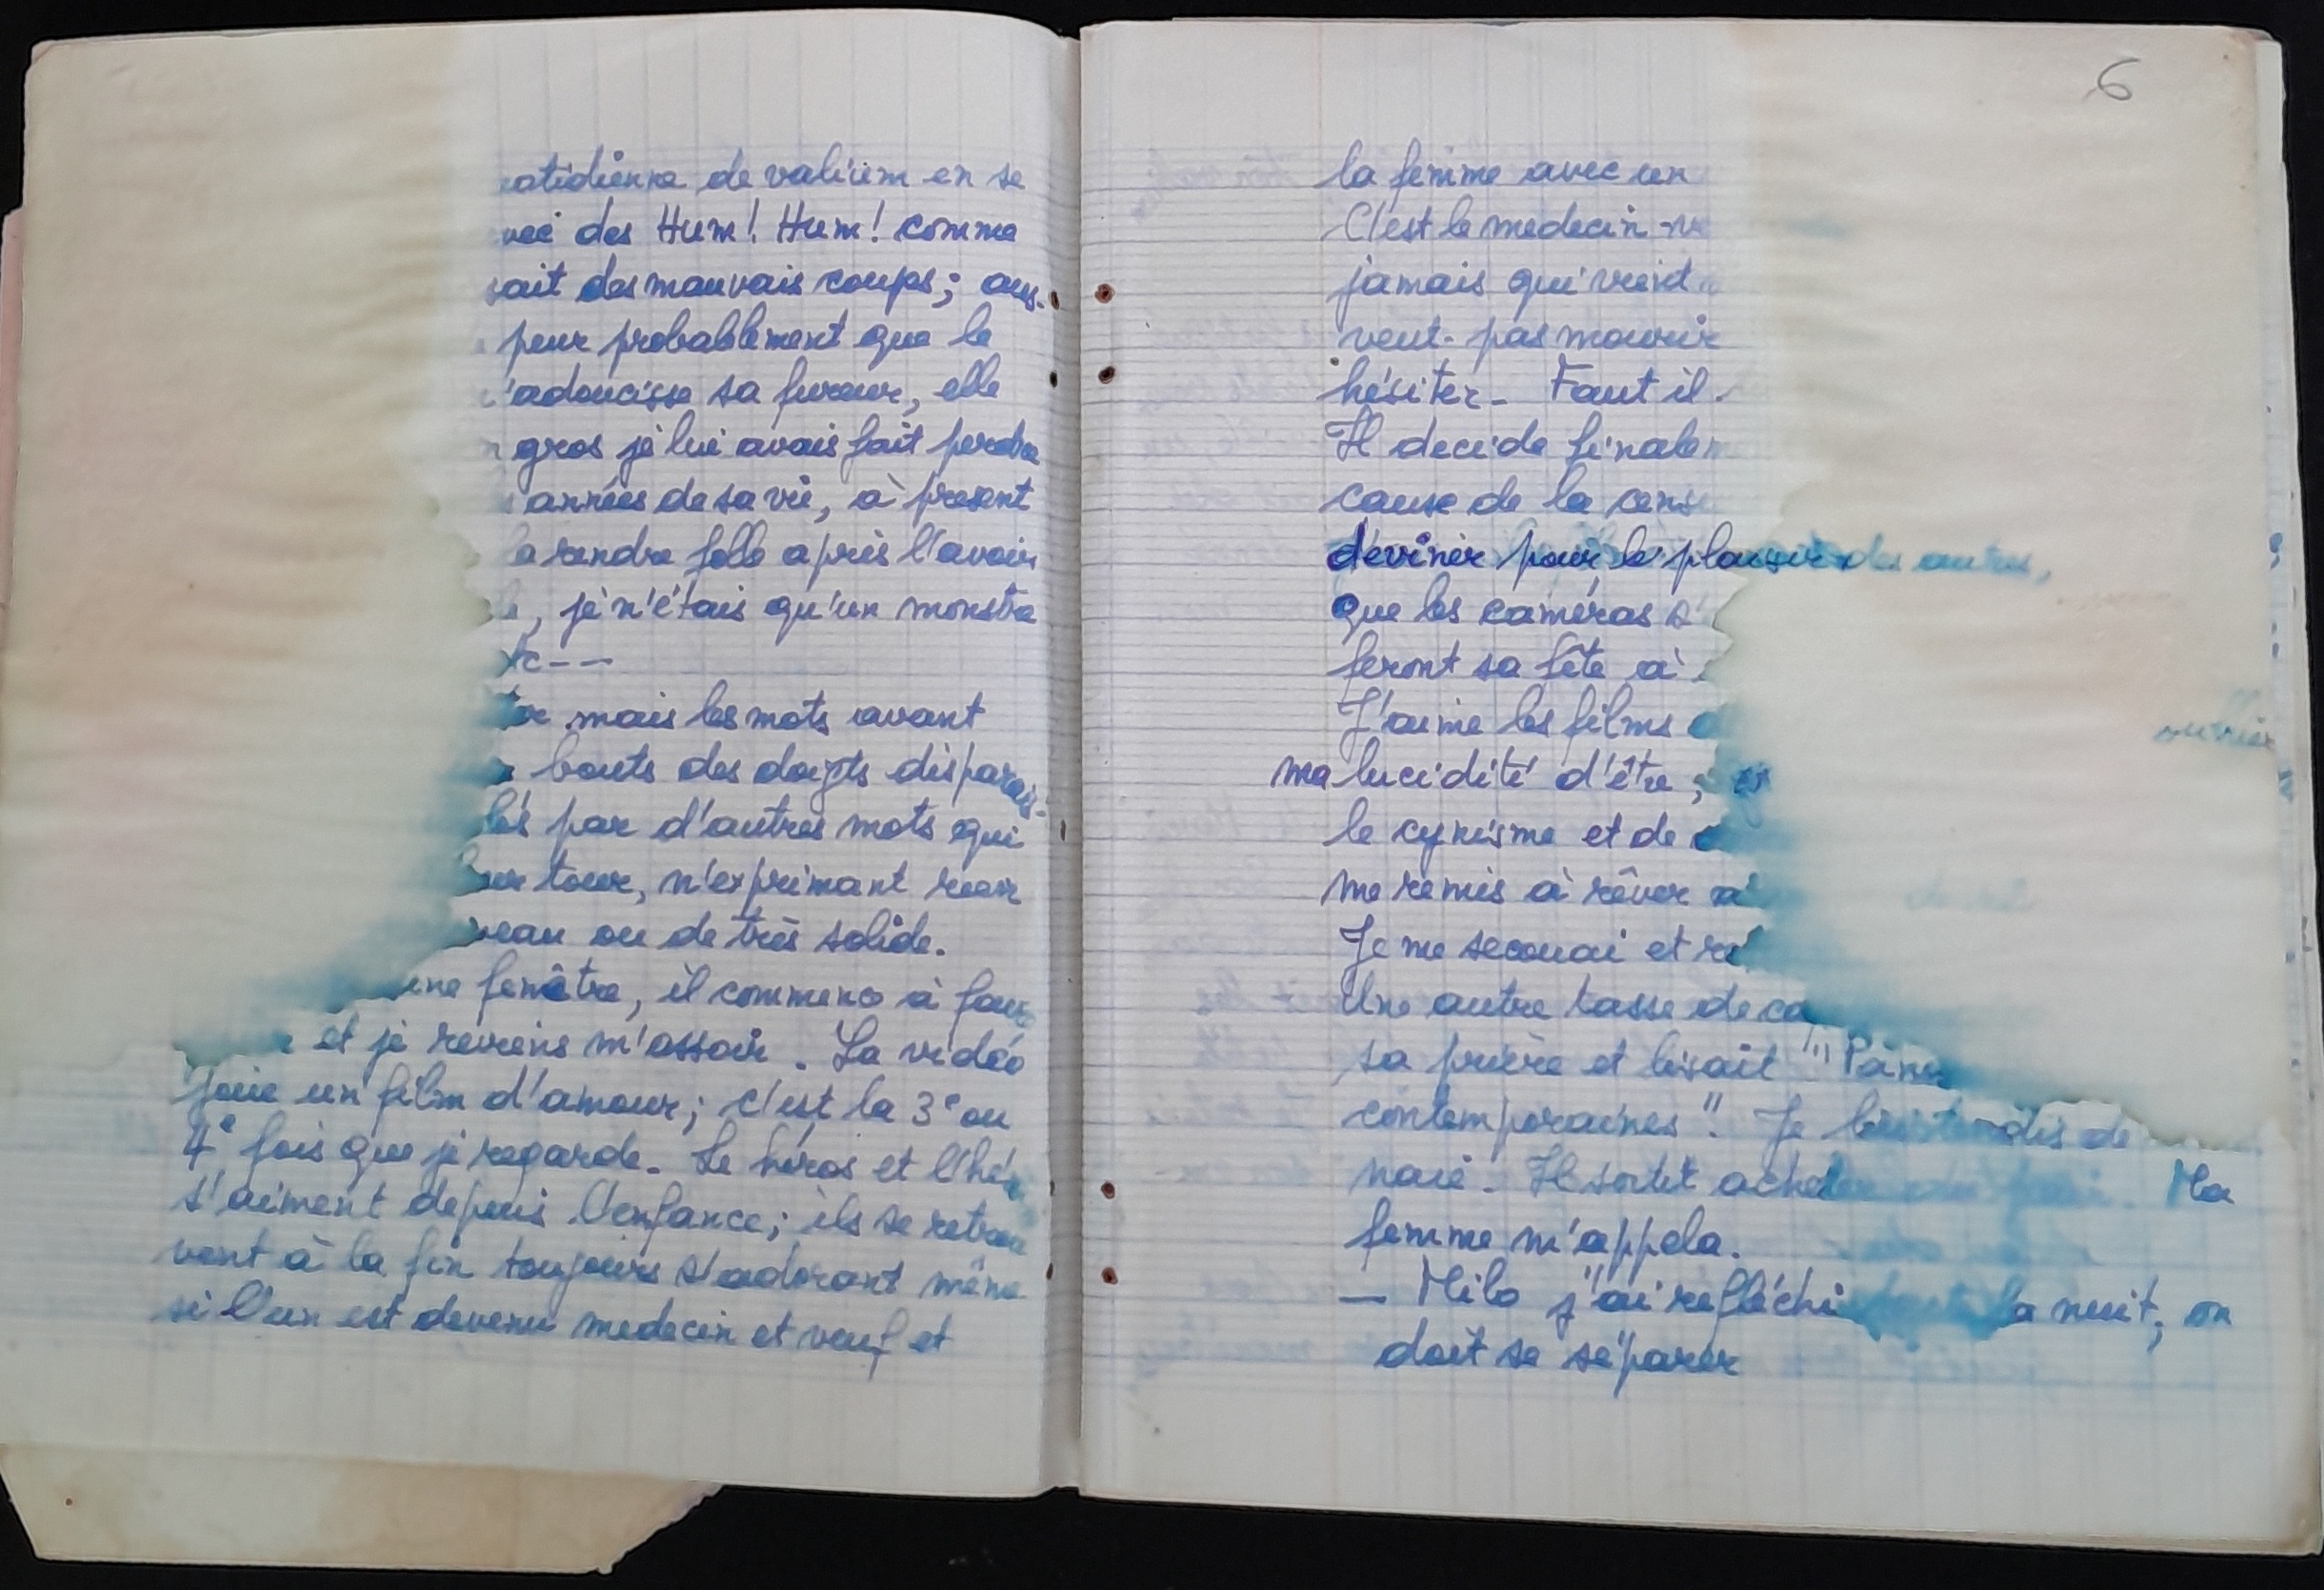 otidienne de valium en se
des Hum! Hum! comme
sait des mauvais coups; aus-
peur probablement que le
n'adoucisse sa fureur, elle
gros je lui avais fait perdre
années de sa vie, à present
la rendre folle après l'avoir
, je n'étais qu'un monstre
tc--
mais les mots avant
bouts des doigts disparais-
lés par d'autres mots qui
leur tour, n'exprimant rien
veau ou de très solide.
une fenêtre, il commence à faire
et je reviens m'assoir. La vidéo
joue un film d'amour; c'est la 3e ou
4e fois que je regarde. Le héros et l'hé
s'aiment depuis l'enfance; ils se retrou
vent à la fin toujours s'adorant même
si l'un est devenu medecin et veuf et
6
la femme avec un
C'est le medecin
jamais qui vient
veut-pas mourir
hésiter- Faut il
Il decide finalem
cause de la cens
deviner pour le plaisir des autres,
que les caméras s'
feront sa fête à
J'aime les films
ma lucidité d'être;
le cynisme et de
me remis à rêver
Je me secouai et
Une autre tasse de ca
sa prière et lisait "Pano
contemporaines". Je lui tendis de
naie. Il sortit ache Ma
femme m'appela.
- Milo j'ai refléchi la nuit, on
doit se séparer